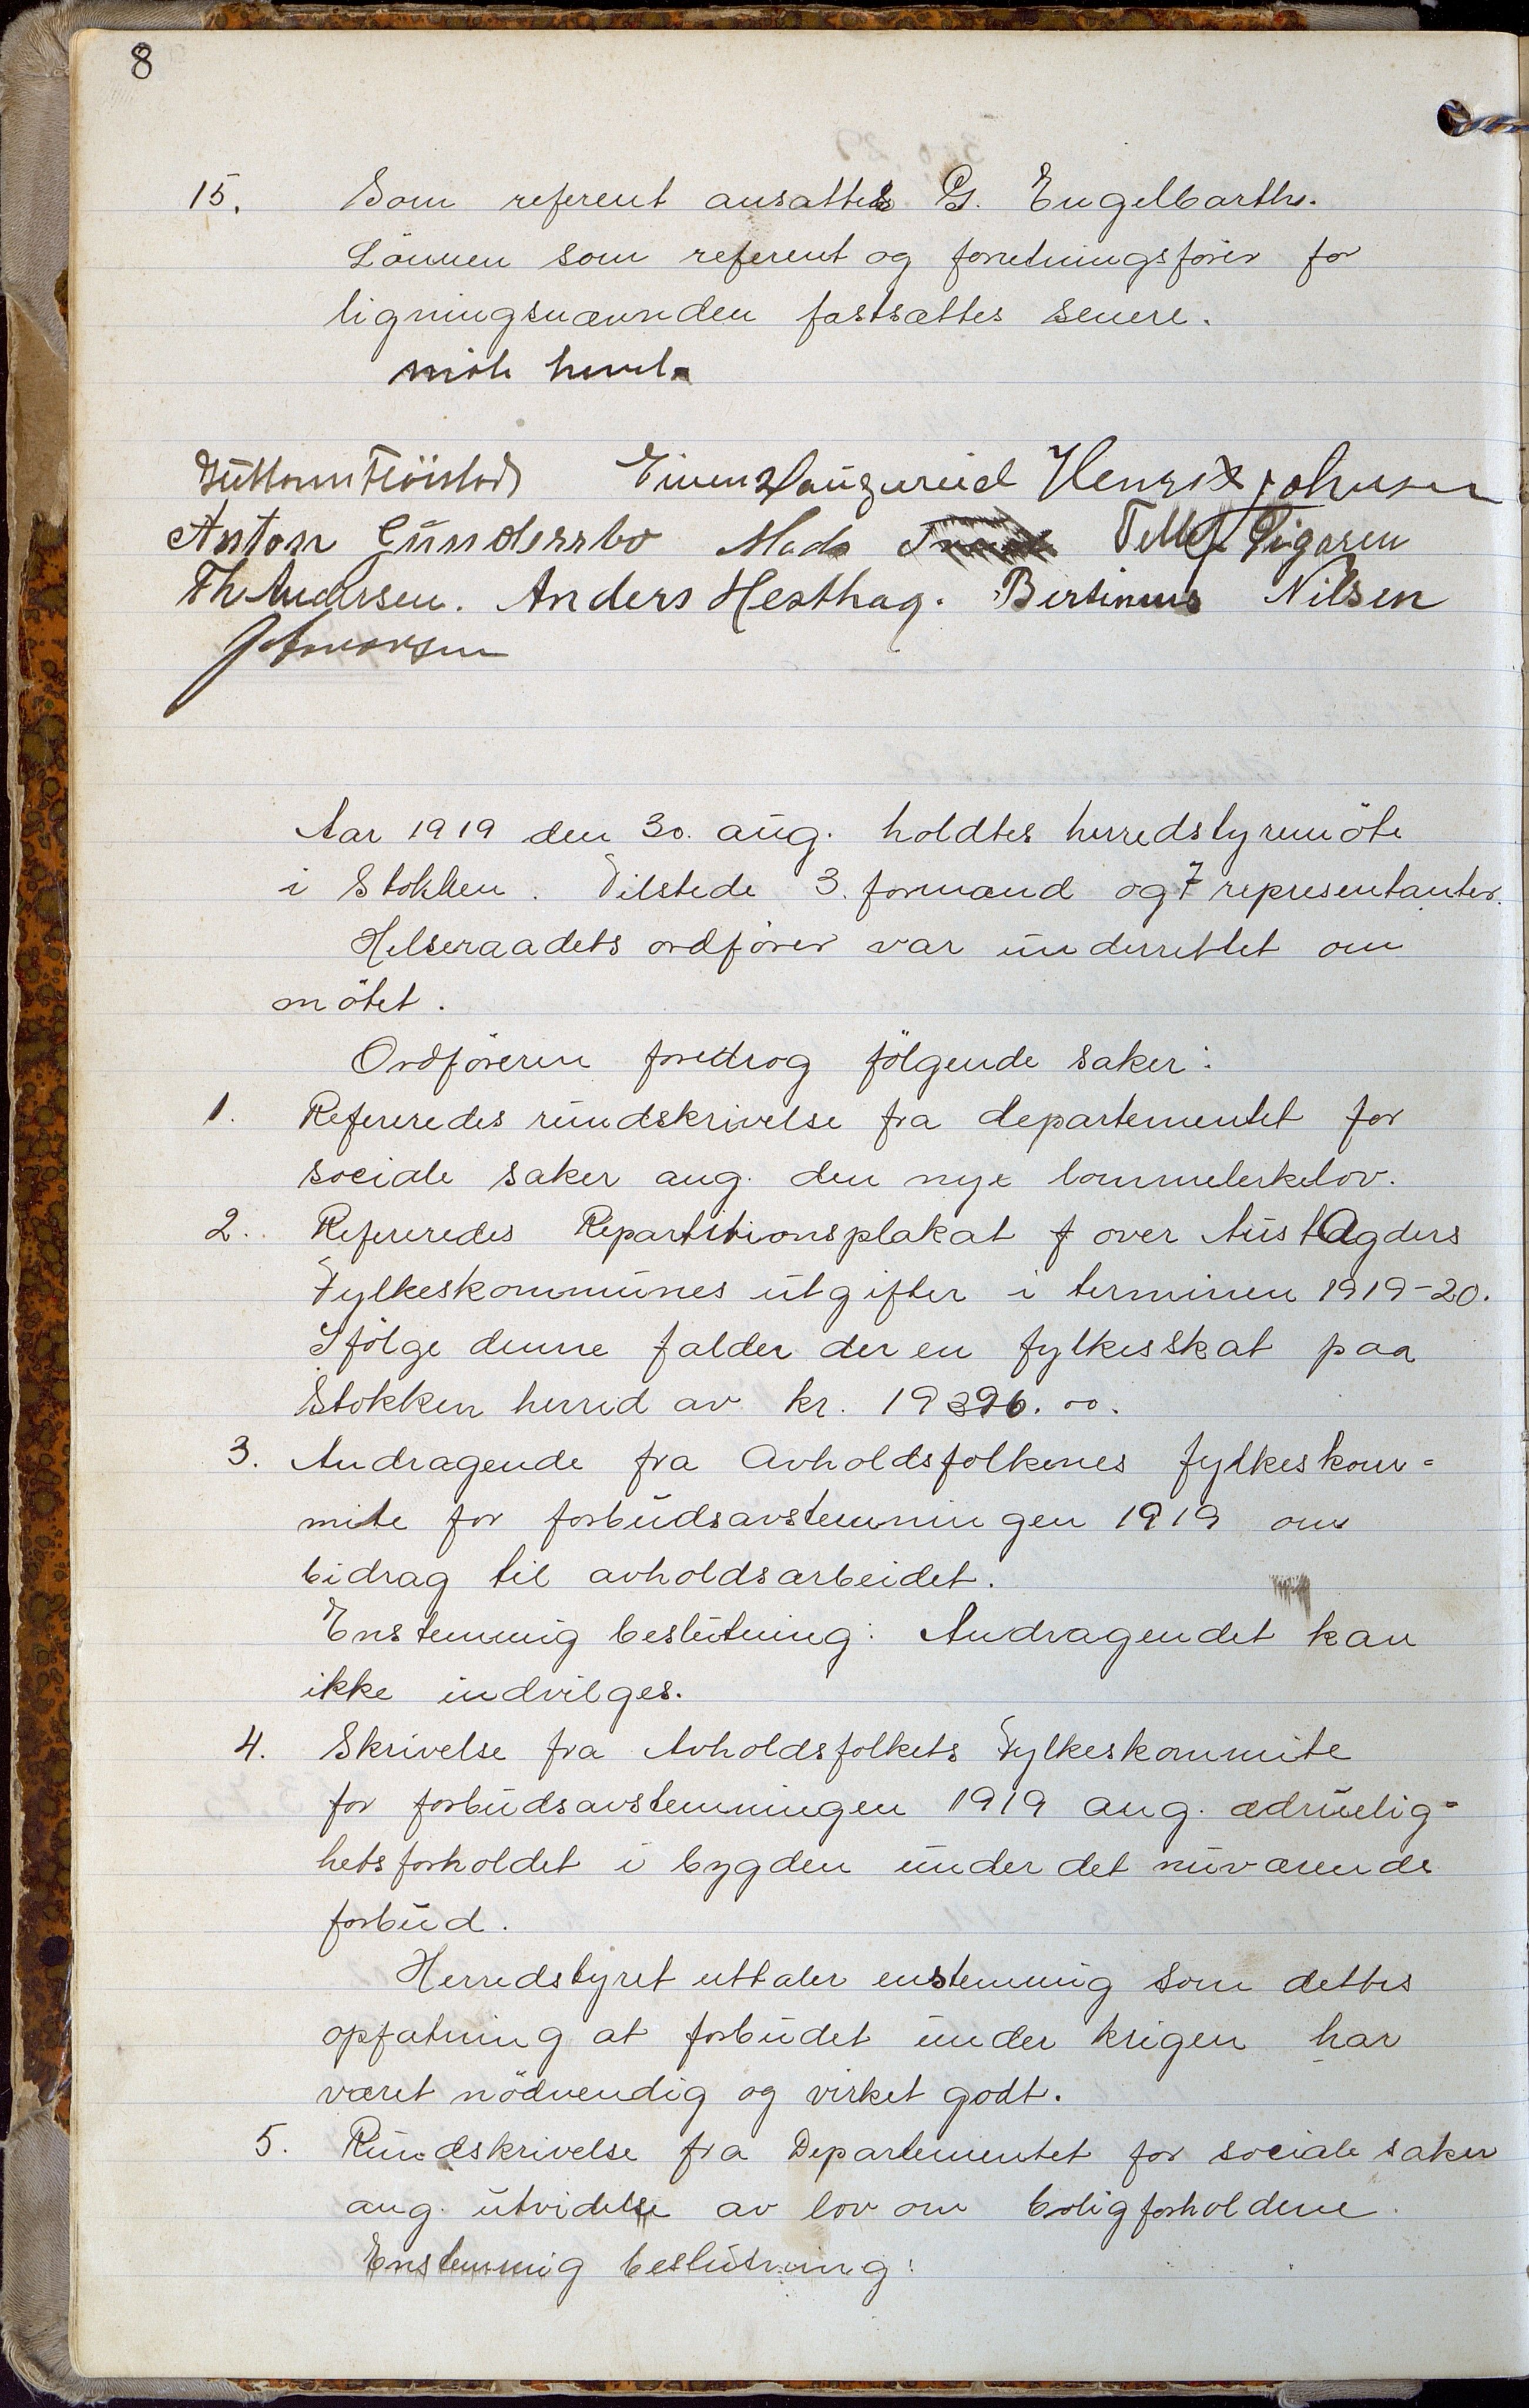 8
15. Som referent ansattes G. Engelbarth.
Lönnen som referent og forretningsförer for
ligningsnævnden fastsættes senere.
möte hevet.
Einer Henrik Johnsen
Anton Gundersbo Mads Tellef Sigersen
Th Andersen. Anders Hesthag. Bertinius Nilsen
Aar 1919 den 30. aug. holdtes herredstyremöte
i Stokken. Tilstede 3. formænd og 7 representanter.
Helseraadets ordförer var underrettet om
mötet.
Ordföreren foredrog fölgende saker:
1. Refereredes rundskrivelse fra departementet for
sociale saker ang. den nye lommelerkelov.
2. Refereredes Repartitionsplakat f over Aust Agders
Fylkeskommunes utgifter i terminen 1919-20.
Ifölge denne falder der en fylkesskat paa
Stokken herred av kr. 19396.00.
3. Andragende fra Avholdsfolkenes fylkeskom-
mite for forbudsavstemningen 1919 om
bidrag til avholdsarbeidet.
Enstemmig beslutning: Andragendet kan
ikke indvilges.
4. Skrivelse fra Avholdsfolkets Fylkeskommite
for forbudsavstemningen 1919 ang. ædruelig-
hetsforholdet i bygden under det nuværende
forbud.
Herredstyret uttaler enstemmig som dettes
opfatning at forbudet under krigen har
været nödvendig og virket godt.
5. Rundskrivelse fra Departementet for sociale saker
ang. utvidelse av lov om boligforholdene.
Enstemmig beslutning: